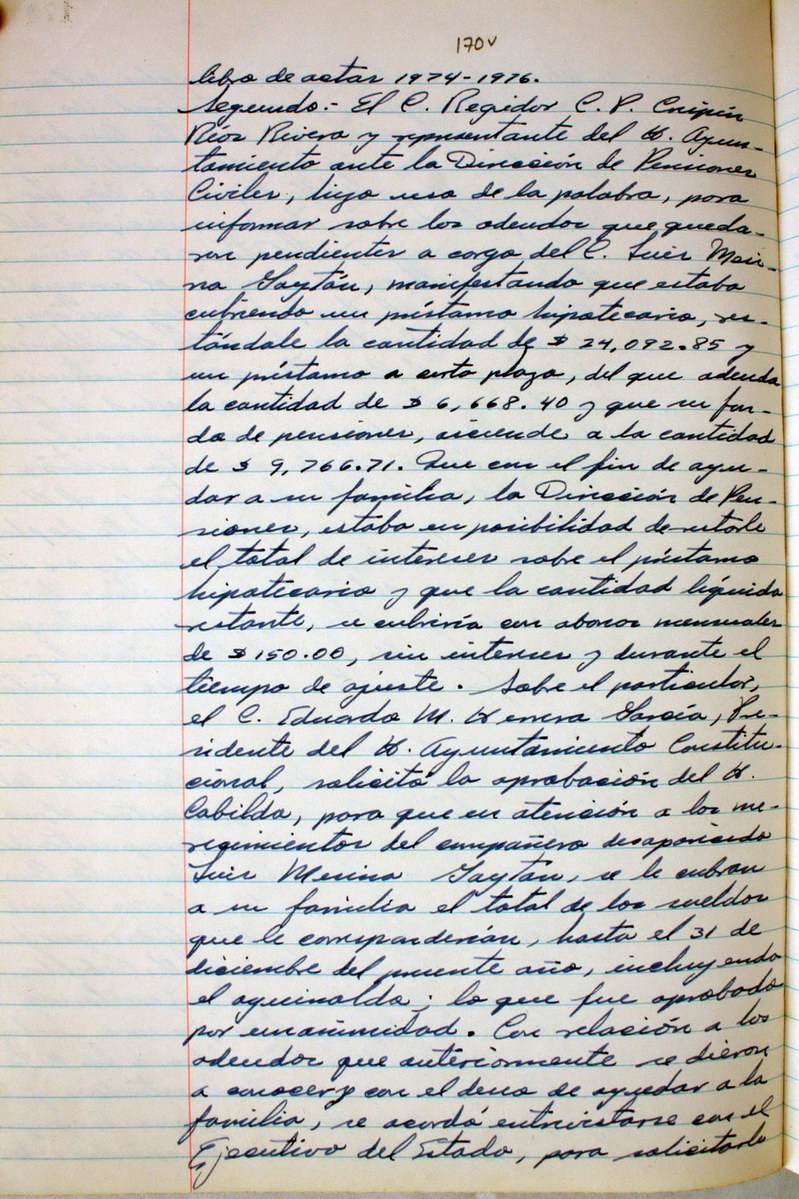 170v
libro de actas 1974-1976.
Segundo.- El C. Regidor C. P. Crispín
Ríos Rivera y representante del H. Ayun-
tamiento ante la Dirección de Pensiones
Civiles, hizo uso de la palabra, para
informar sobre los adeudos que queda-
ron pendientes a cargo del C. Luis Meri-
na Gaytán, manifestando que estaba
cubriendo un préstamo hipotecario, res-
tándole la cantidad de $ 24,092.85 y
un préstamo a corto plazo, del que adeuda
la cantidad de $ 6,668.40 y que su fon-
do de pensiones, asciende a la cantidad
de $ 9,766.71. Que con el fin de ayu-
dar a su familia, la Dirección de Pen-
siones, estaba en posibilidad de restarle
el total de intereses sobre el préstamo
hipotecario y que la cantidad líquida
restante, se cubriría con abonos mensuales
de $ 150.00, sin intereses y durante el
tiempo de ajuste. Sobre el particular,
el C. Eduardo M. Herrera García, Pre-
sidente del H. Ayuntamiento Constitu-
cional, solicitó la aprobación del H.
Cabildo, para que en atención a los me-
recimientos del compañero desaparecido
Luis Merina Gaytán, se le cubran
a su familia el total de los sueldos
que le corresponderían, hasta el 31 de
diciembre del presente año, incluyendo
el aguinaldo; lo que fue aprobado
por unanimidad. Con relación a los
adeudos que anteriormente se dieron
a conocer y con el deseo de ayudar a la
familia, se acordó entrevistarse con el
Ejecutivo del Estado, para solicitarle